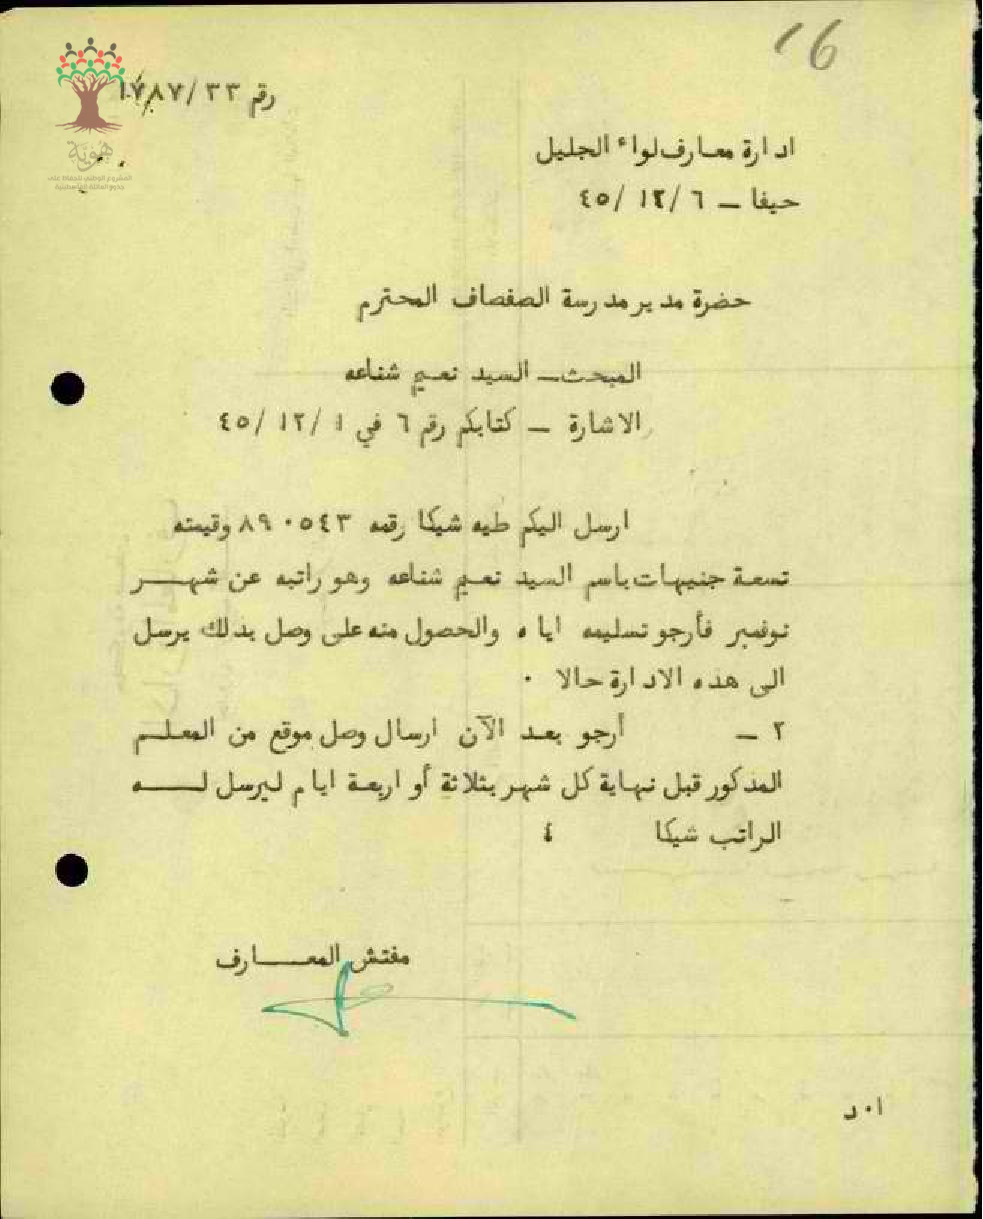 16
رقم ٣٣/١٧٨٧
هوية
المشروع الوطني للحفاظ على
جذور العائلة الفلسطينية
ادارة معارف لواء الجليل
حيفا – ٦ /١٢ /٤٥
حضرة مدير مدرسة الصفصاف المحترم
المبحث – السيد نعيم شناعه
الاشارة – كتابكم رقم ٦ في ١ /١٢ /٤٥
ارسل اليكم طيه شيكا رقمه ٨٩٠٥٤٣ وقيمته
تسعة جنيهات باسم السيد نعيم شناعه وهو راتبه عن شهـــر
نوفمبر فأرجو تسليمه اياه والحصول منه على وصل بذلك يرسل
الى هذه الادارة حالا ٠
٢ – أرجو بعد الآن ارسال وصل موقع من المعلـم
المذكور قبل نهاية كل شهر بثلاثة أو اربعة ايام ليرسل لـــه
الراتب شيكا ٤
مفتش المعـــارف
ا٠د